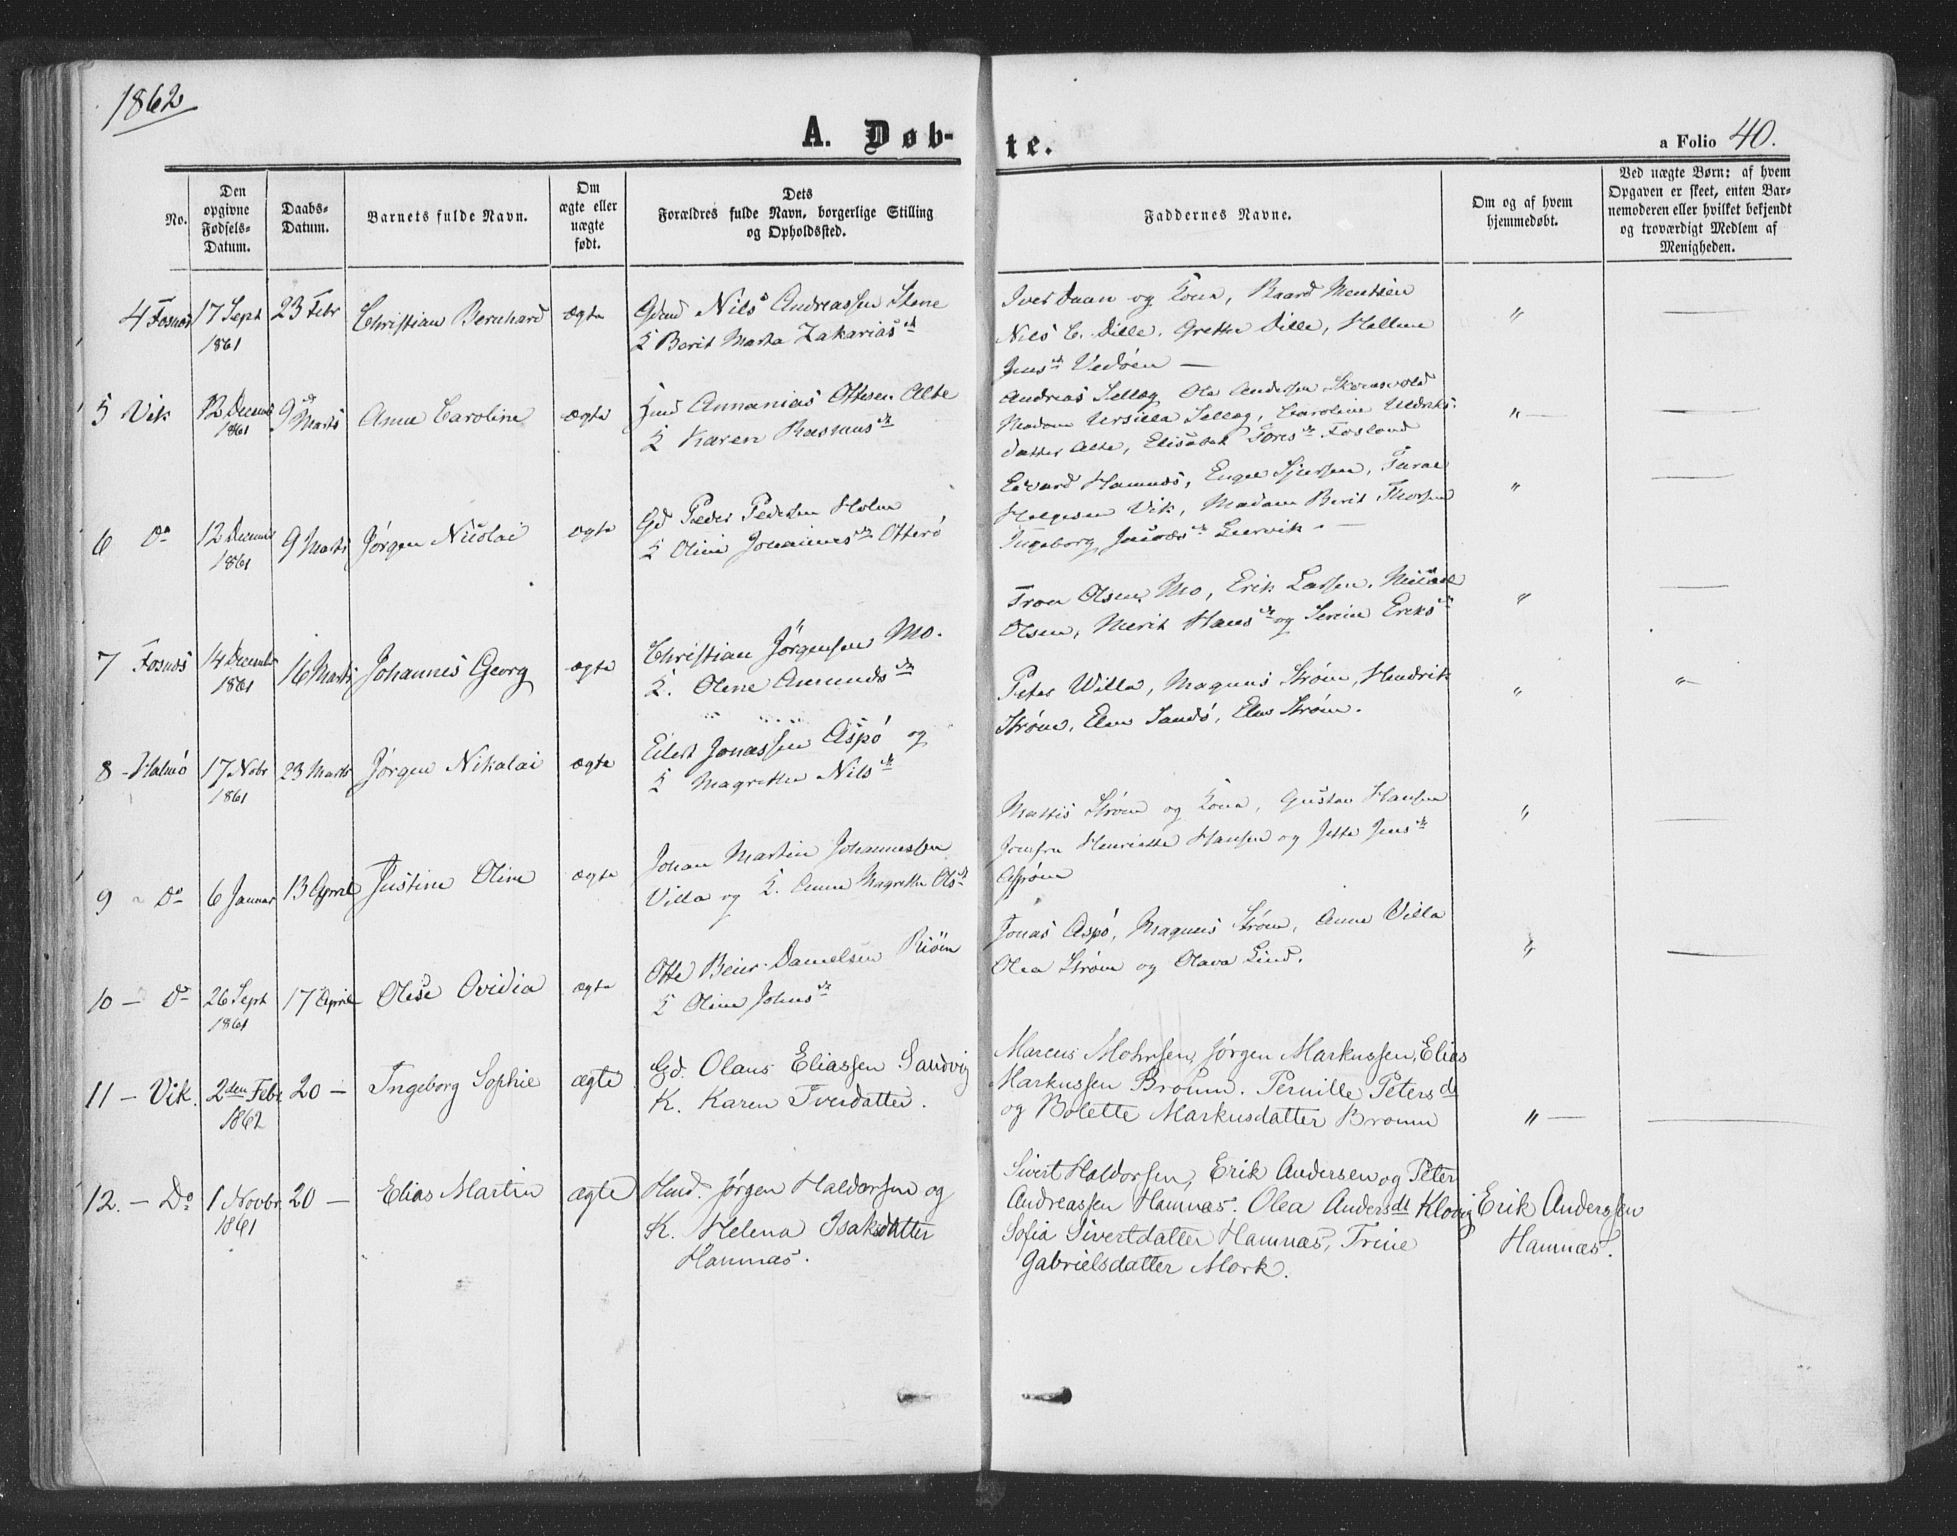 1862
A. Døb-
te.
a Folio 40.
No.
Den
opgivne
Fødsels-
Datum.
Daabs-
Datum.
Barnets fulde Navn.
Om
ægte eller
uægte
født.
Dets
Forældres fulde Navn, borgerlige Stilling
og Opholdssted.
Faddernes Navne.
Om og af hvem
hjemmedøbt.
Ved uægte Børn: af hvem
Opgaven er skeet, enten Bar-
nemoderen eller hvilket bekjendt
og troværdigt Medlem af
Menigheden.
4 Fosnæs 17 Sept 23 Febr Christian Bernhard ægte Nils Andreassen
1861
K Berit Marta Zakarias dt
Iver Duun og Kona, Baard
Nils C. Dille, Grethe Dille,
Jens dt Vedøen —
"
—
5 Vik 12 Decemb 9 Marts Anne Caroline ægte Annanias Ottesen Alte
1861
K Karen Rasmus dt
Andreas Sellæg Ole Andersen
Madam Ursilla Sellæg, Caroline Uldriks-
datter Alte, Elisabet Tores dt Fosland
" —
—
6 Do 12 Decemb 9 Marts Jørgen Nicolai ægte Gd Peder Pedersen Holm
1861
K Oline Johannes dt Otterø
Edvard Hamnæs, Engel
Helgesen Vik, Madam Berit Thorsen
Ingeborg
"
—
7 Fosnæs 14 Decemb 16 Marts Johannes Georg ægte Christian Jørgensen Mo.
1861
K. Olene Amunds dt
Tron Olsen Mo, Erik Larsen,
Olsen, Merit Hans dt og Serine Eriks dt
"
—
8 - Halmø 17 Nobr 23 Marts Jørgen Nikolai ægte Eilert Jonassen Aspø og
1861
K Magrethe Nils dt
Peter Willa, Magnus Strøm, Hendrik
Strøm, Elen Sandø, Elen Strøm.
"
" —
9 - Do 6 Januar 13 April Justine Oline ægte Johan Martin Johannessen
Villa og K. Anne Magrethe Ols dt
Mattis Strøm og Kona, Gustav Hansen
Jomfru Henriette Hansen og Jette Jens dt
"
—
10 — Do 26 Sept 17 April Olise Ovidia ægte Otte Beier Danielsen
1861
K Oline Johns dt
Jonas Aspø, Magnus Strøm, Anne Villa
Olea Strøm og Olava Lind.
"
—
11 — Vik. 2den Febr 20 — Ingeborg Sophie ægte Gd. Olaus Eliassen Sandvig
1862
K. Karen Iverdatter.
Marcus Mohrsen, Jørgen Markussen, Elias
Markussen Bromm. Pernille Peters dt
og Bolette Markusdatter Bromm
" —
—
12. — Do 1 Novbr 20 — Elias Martin ægte Hmd. Jørgen Haldorsen og
1861
K. Helena Isaksdatter
Hamnæs.
Sivert Haldorsen, Erik Andersen og Peter
Andreassen Hamnæs. Olea Anders dt Klovig
Sofia Sivertdatter Hamnæs, Trine
Gabrielsdatter Mork.
Erik Anderssen
Hamnæs.